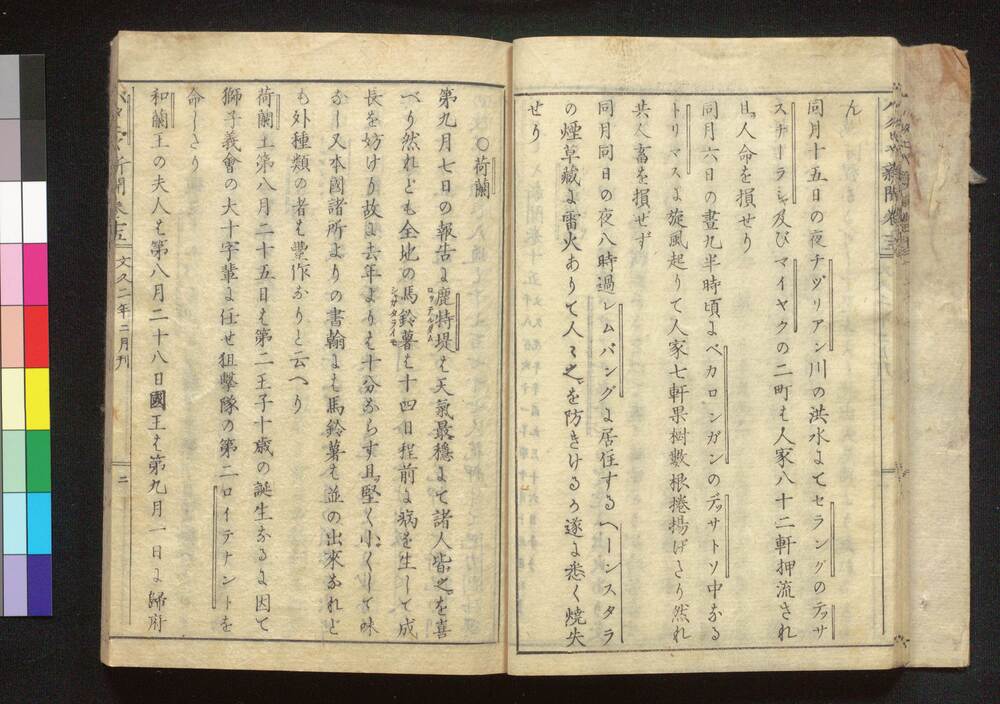 ん
同月十五日の夜チヅリアン川の洪水にてセラングのデッサ
スチーラシ及びマイヤクの二町は人家八十二軒押流され
且人命を損せり
同月六日の晝九半時頃にペカロンガンのデッサトソ中なる
トリマスに旋風起りて人家七軒果樹數根捲揚げたり然れ
共人畜を損せず
同月同日の夜八時過レムバングに居住するヘーンスタラ
の煙草藏に雷火ありて人々之を防きけるか遂に悉く焼失
せり
○荷蘭
第九月七日の報告に鹿特堤は天氣最穏にて諸人皆之を喜
ロッテルダム
べり然れども全地の馬鈴薯は十四日程前に病を生して成
ジャガタライモ
長を妨けり故に去年よりは十分ならす且堅く小くして味
なし又本國諸所よりの書翰にも馬鈴薯は並の出來なれど
も外種類の者は豊作なりと云へり
荷蘭王第八月二十五日は第二王子十歳の誕生なるに因て
獅子義會の大十字軰に任せ狙擊隊の第二ロイテナントを
命したり
和蘭王の夫人は第八月二十八日國王は第九月一日に歸府
新聞卷十五
文久二年二月刊
二